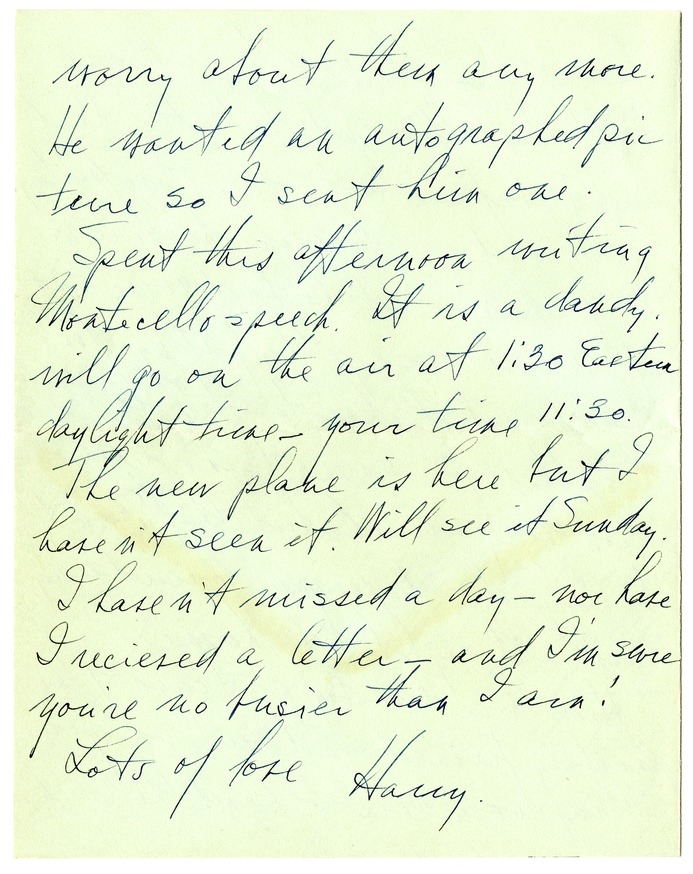 worry about them any more.
He wanted an autographed pic
ture so I sent him one.
Spent this afternoon writing
Monticello speech. It is a dandy.
will go on the air at 1:30 Eastern
daylight time – your time 11:30.
The new plane is here but I
haven't seen it. Will see it Sunday.
I haven't missed a day – nor have
I recieved a letter – and I'm sure
you're no busier than I am!
Lots of love Harry.